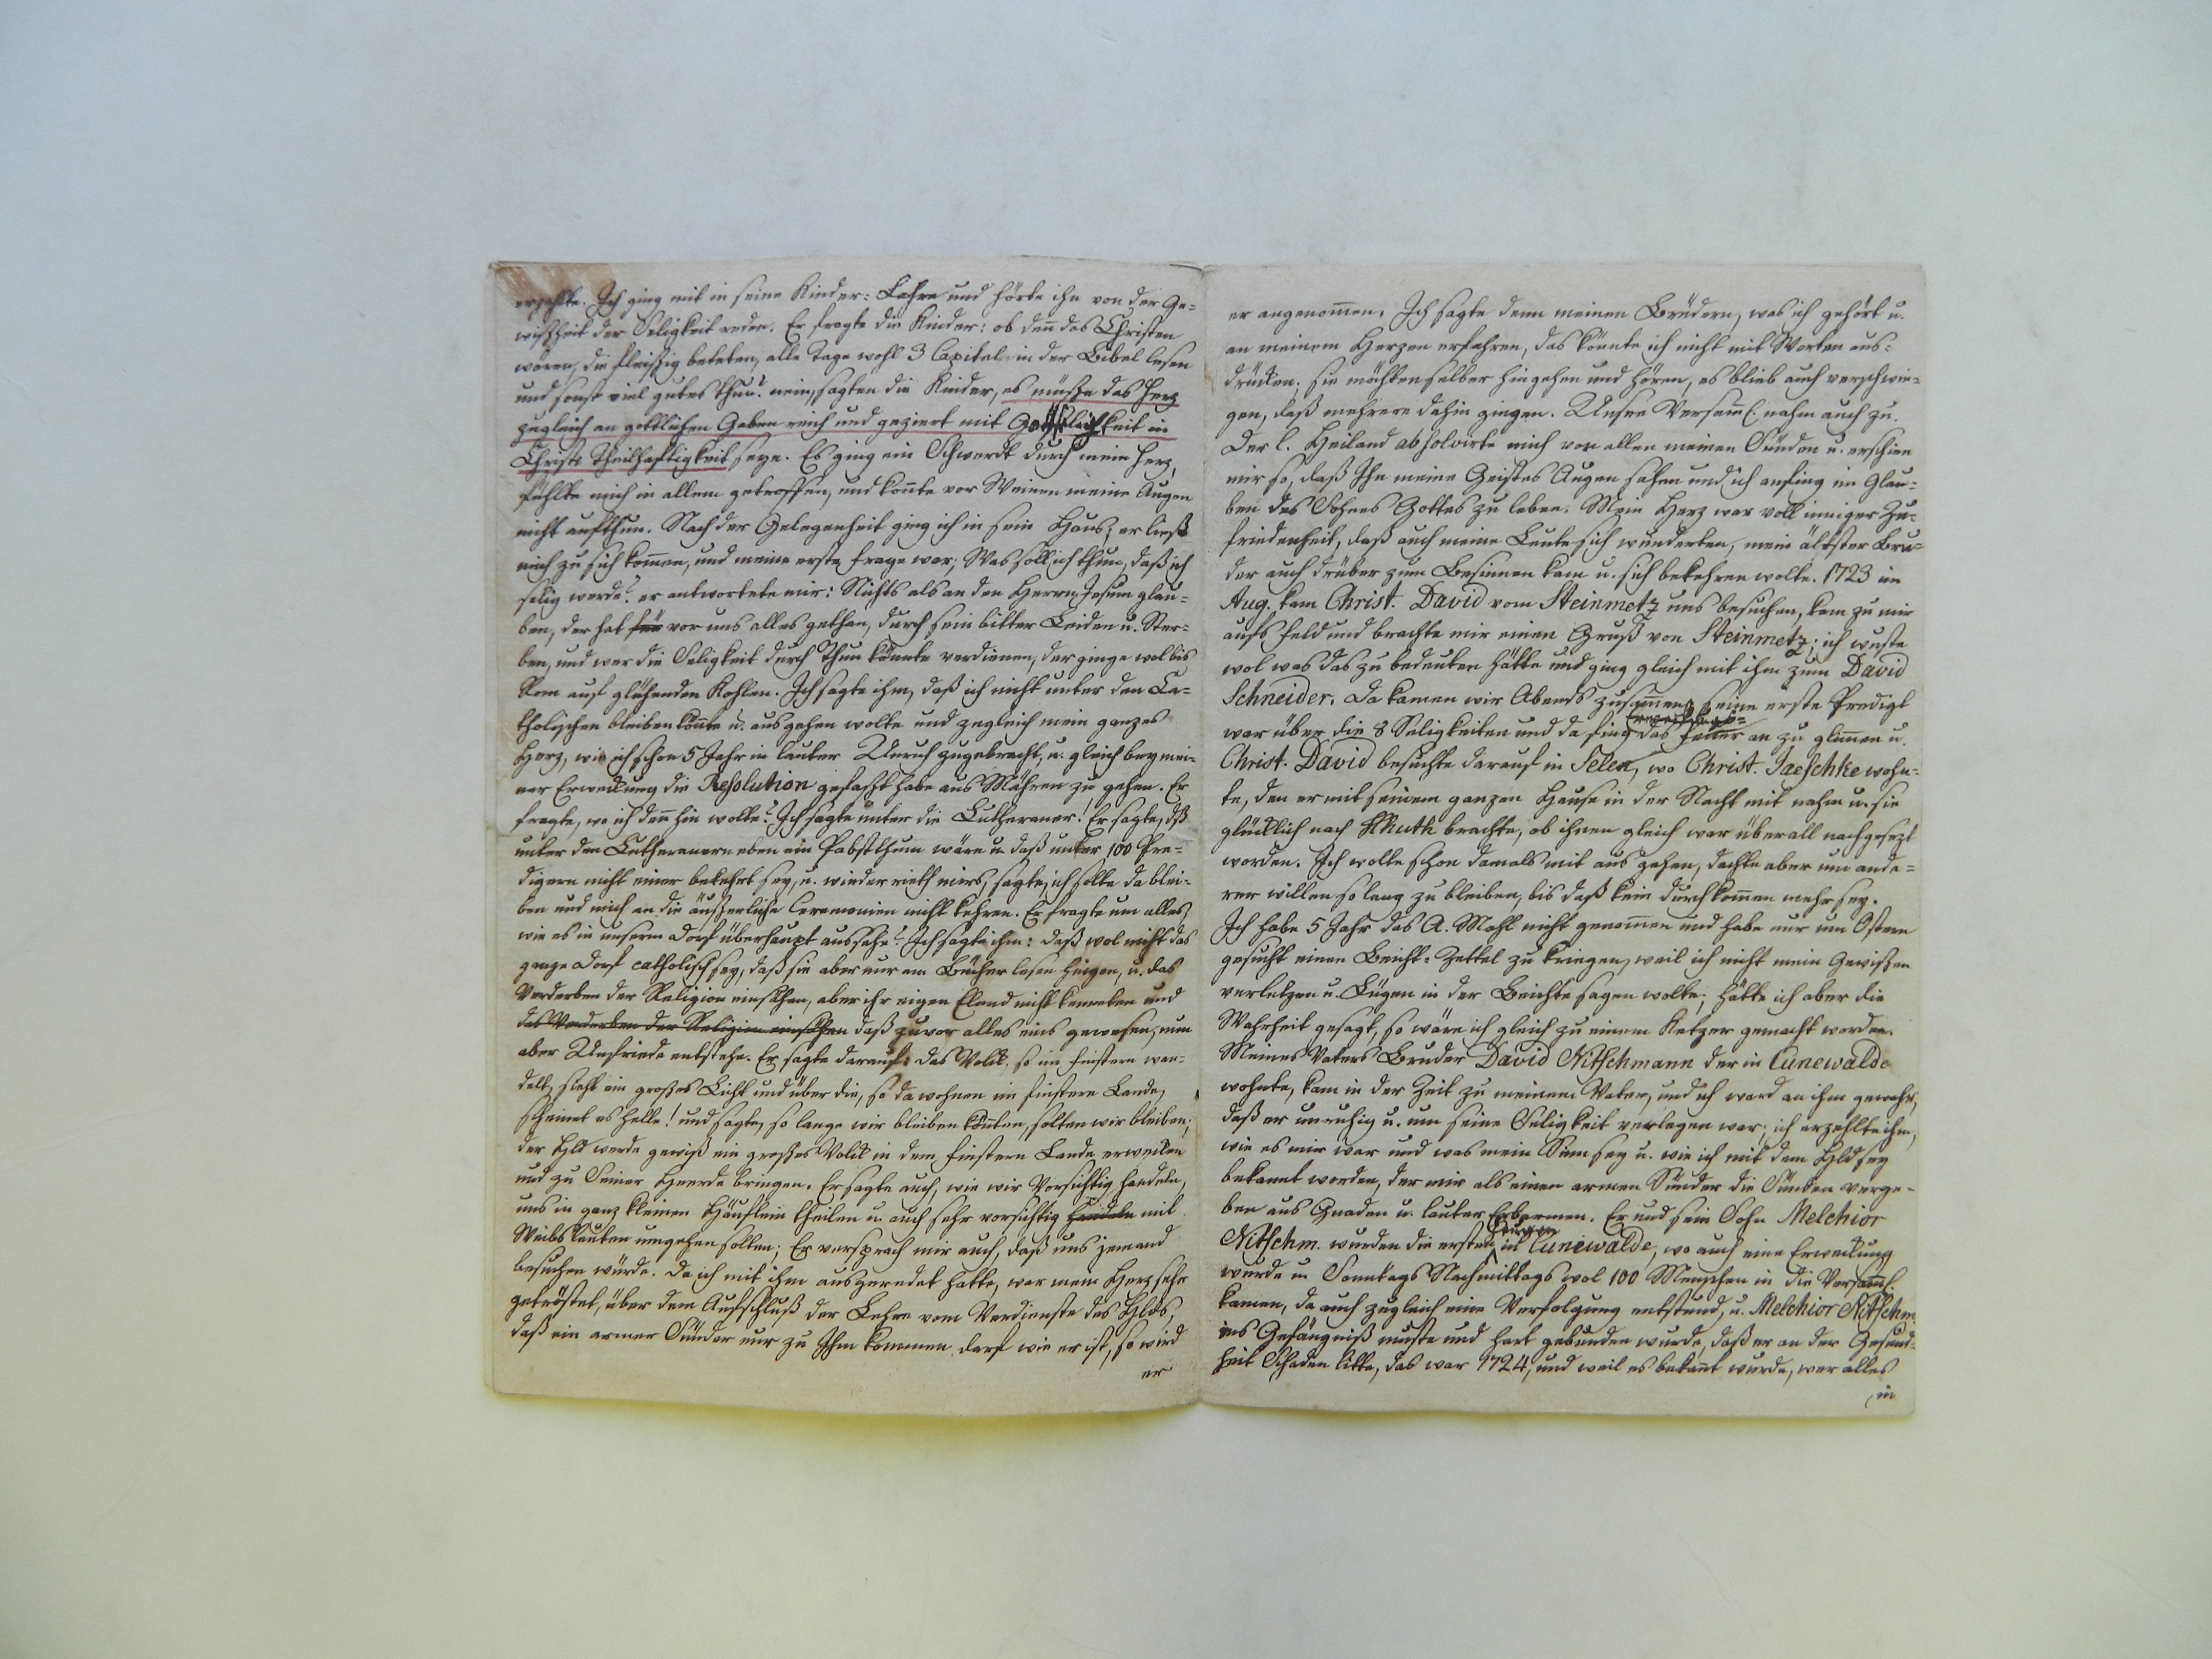 erzehlte. Ich ging mit in seine Kinder-Lehre und hörte ihn von der Ge-
wißheit der Seligkeit reden. Er fragte die Kinder: ob deñ das Christen
wären, die fleissig beteten, alle Tage wohl 3 Capitel in der Bibel lesen
und sonst viel gutes thun? nein, sagten die Kinder, es müsse das Herz
zugleich an göttlichen Gaben reich und geziert mit keit in
Christi Theilhaftigkeit seyn. Es ging ein Schwerdt durch mein Herz,
fühlte mich in allem getroffen, und koñte vor Weinen meine Augen
nicht aufthun. Nach der Gelegenheit ging ich in sein Haus, er ließ
mich zu sich kom̃en, und meine erste Frage war; Was soll ich thun, daß ich
selig werde? er antwortete mir: Nichts als an den Herrn Jesum glau-
ben, der hat für vor uns alles gethan, durch sein bitter Leiden u. Ster-
ben, und wer die Seligkeit durch Thun könnte verdienen, der ginge wol bis
Rom auf glühenden Kohlen. Ich sagte ihm, daß ich nicht unter den Ca-
tholischen bleiben köñte u. ausgehen wolte und zugleich mein ganzes
Herz, wie ich schon 5 Jahr in lauter Unruh zugebracht, u. gleich bey mei-
ner Erweckung die Resolution gefasst habe aus Mähren zu gehen. Er
fragte, wo ich deñ hin wolte? Ich sagte unter die Lutheraner! Er sagte, dß
unter den Lutheranern eben ein Pabstthum wäre u. daß unter 100 Pre-
digern nicht einer bekehrt sey, u. wieder rieth mirs, sagte, ich solte da blei-
ben und mich an die äusserliche Ceremonien nicht kehren. Er fragte um alles,
wie es in unserm Dorf überhaupt aussehe? Ich sagte ihm: daß wol nicht das
ganze Dorf catholisch sey, daß sie aber nur am Bücher lesen hingen, u. das
Verderben der Religion einsähen, aber ihr eigen Elend nicht kenneten und
das Verderben der Religion einsähen daß zuvor alles eins gewesen, nun
aber Unfriede entstehe. Er sagte darauf: Das Volck, so im finstern wan-
delt, sieht ein großes Licht und über die, so da wohnen im finstern Lande,
scheinet es helle! und sagte, so lange wir bleiben köñten, solten wir bleiben;
der Hld werde gewiß ein großes Volck in dem finstern Lande erwecken
und zu Seiner Heerde bringen. Er sagte auch, wie wir vorsichtig handeln,
uns in ganz kleinen Häuflein theilen u. auch sehr vorsichtig handeln mit
Weibsleuten umgehen sollen; Er versprach mir auch, daß uns jemand
besuchen würde. Da ich mit ihm ausgeredet hatte, war mein Herz sehr
getröstet, über dem Aufschluß der Lehre vom Verdienste des Hlds,
daß ein armer Sünder nur zu Ihm kommen darf wie er ist, so wird
er
er angenom̃en. Ich sagte denn meinen Brüdern, was ich gehört u.
an meinem Herzen erfahren, das könnte ich nicht mit Worten aus-
drücken; sie möchten selber hingehen und hören, es blieb auch verschwie-
gen, daß mehrere dahin gingen. Unsre Versam̃l. nahm auch zu.
Der l. Heiland absolvirte mich von allen meinen Sünden u. erschien
mir so, daß Ihn meine Geistes Augen sahen und ich anfing im Glau-
ben des Sohnes Gottes zu leben. Mein Herz war voll inniger Zu-
friedenheit, daß auch meine Leute sich wunderten, mein ältster Bru-
der auch drüber zum Besinnen kam u. sich bekehren wolte. 1723 im
Aug. kam Christ. David vom Steinmetz uns besuchen, kam zu mir
aufs Feld und brachte mir einen Gruß von Steinmetz; ich wuste
wol was das zu bedeuten hätte und ging gleich mit ihm zum David
Schneider. Da kamen wir Abends zusam̃en, seine erste Predigt
war über die 8 Seligkeiten und da fing das Feuer an zu glim̃en u.
Christ. David besuchte darauf in Selen, wo Christ. Jaeschke wohn-
te, den er mit seinem ganzen Hause in der Nacht mit nahm u. sie
glücklich nach Hhuth brachte, ob ihnen gleich war überall nachgesezt
worden. Ich wolte schon damals mit aus gehen, dachte aber um ande-
rer willen so lang zu bleiben, bis daß kein durchkom̃en mehr sey.
Ich habe 5 Jahr das A. Mahl nicht genom̃en und habe nur um Ostern
gesucht einen Beicht-Zettel zu kriegen, weil ich nicht mein Gewißen
verletzen u. Lügen in der Beichte sagen wolte; hätte ich aber die
Wahrheit gesagt, so wäre ich gleich zu einem Ketzer gemacht worden.
Meines Vaters Bruder David Nitschmann der in Cunewalde
wohnte, kam in der Zeit zu meinem Vater, und ich ward an ihm gewahr,
daß er unruhig u. um seine Seligkeit verlegen war; ich erzehlte ihm,
wie es mir war und was mein Sinn sey u. wie ich mit dem Hld sey
bekannt worden, der mir als einen armen Sünder die Sünden verge-
ben aus Gnaden u. lauter Erbarmen. Er und sein Sohn Melchior
Nitschm. wurden die ersten in Cunewalde, wo auch eine Erweckung
wurde u. Sonntags Nachmittags wol 100 Menschen in die Versam̃l.
kamen, da auch zugleich eine Verfolgung entstund, u. Melchior Nitschm.
ins Gefängniß muste und hart gebunden wurde, daß er an der Gesund-
heit Schaden litte, das war 1724, und weil es bekañt wurde, war alles
in